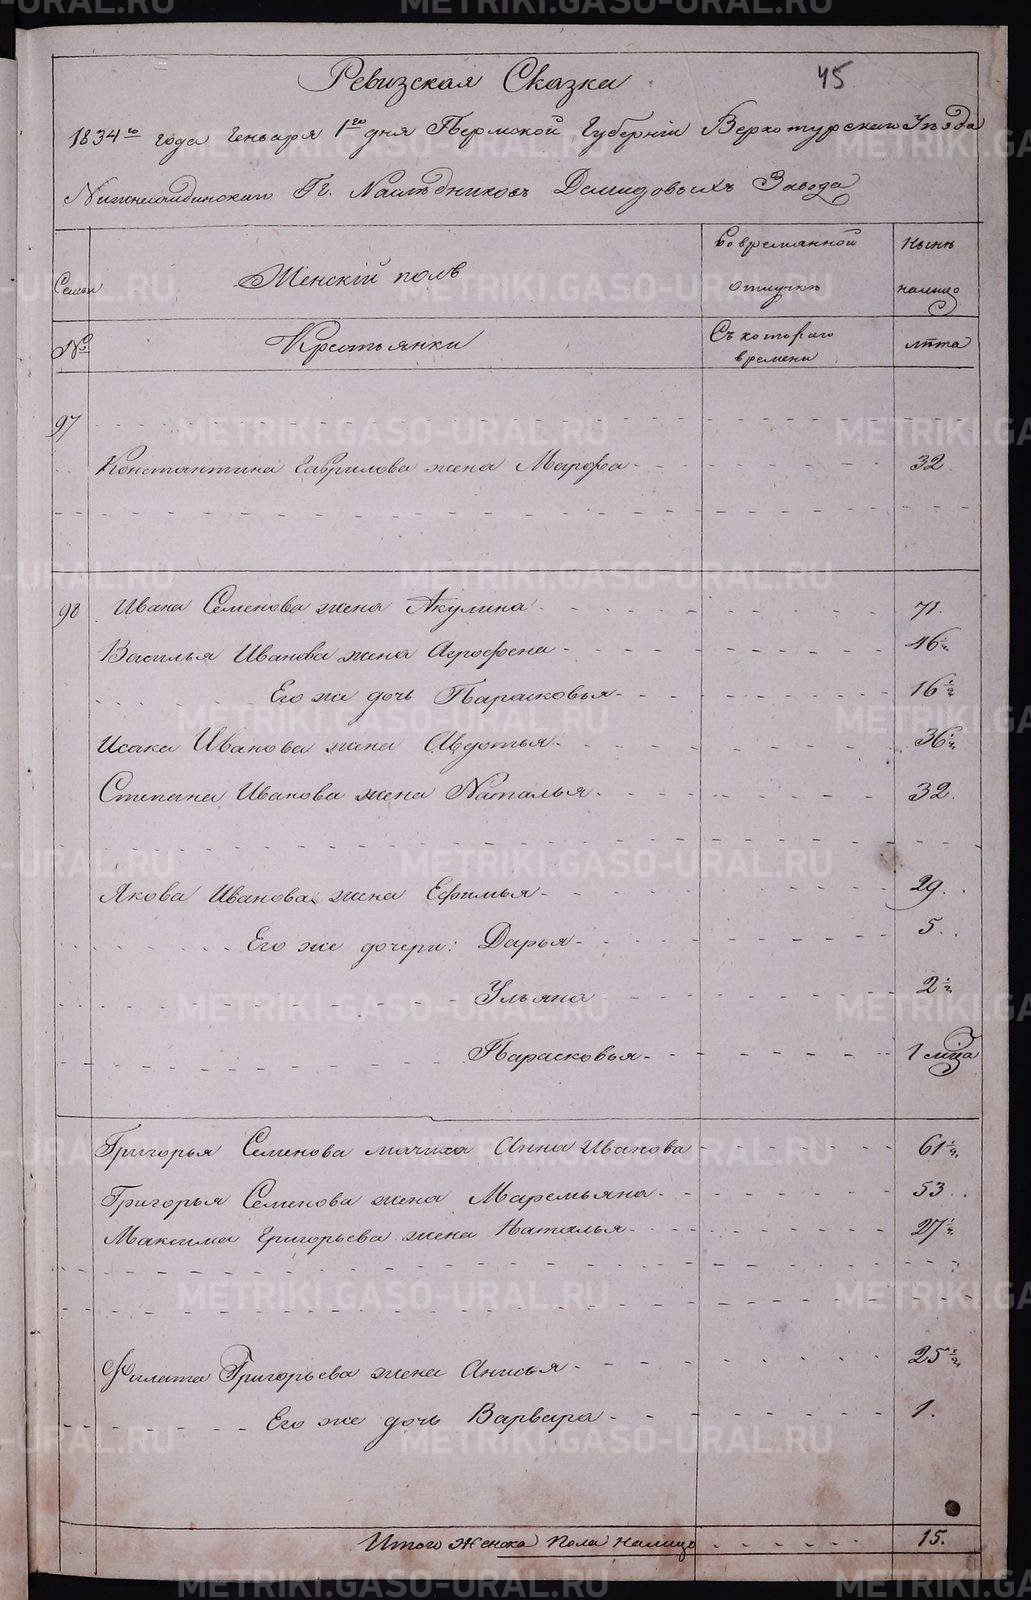 45
Ревизская Сказка
1834го года Генваря 1го дня Пермской Губернiи Верхотурскаго Уѣзда
Нижнесалдинскаго Гг. Наслѣдниковъ Демидовыхъ Завода
Семьи
Женскiй полъ
Во временной отлучкѣ
Нынѣ налицо
№
Крестьянки
Съ котораго времени
лѣта
97
Константина Гаврилова жена Марфа 32
98 Ивана Семенова жена Акулина 71.
Василья Иванова жена Агрофена 46½
Его же дочь Парасковья 16½
Исака Иванова жена Авдотья 36½
Степана Иванова жена Наталья 32.
Якова Иванова жена Ефимья 29.
Его же дочери: Дарья 5.
Ульяна 2½
Парасковья 1 мѣца
Григорья Семенова мачиха Анна Иванова 61½
Григорья Семенова жена Маремьяна 53.
Максима Григорьева жена Наталья 27½
Филата Григорьева жена Анисья 25½
Его же дочь Варвара 1.
Итого женска пола налицо 15.
METRIKI.GASO-URAL.RU